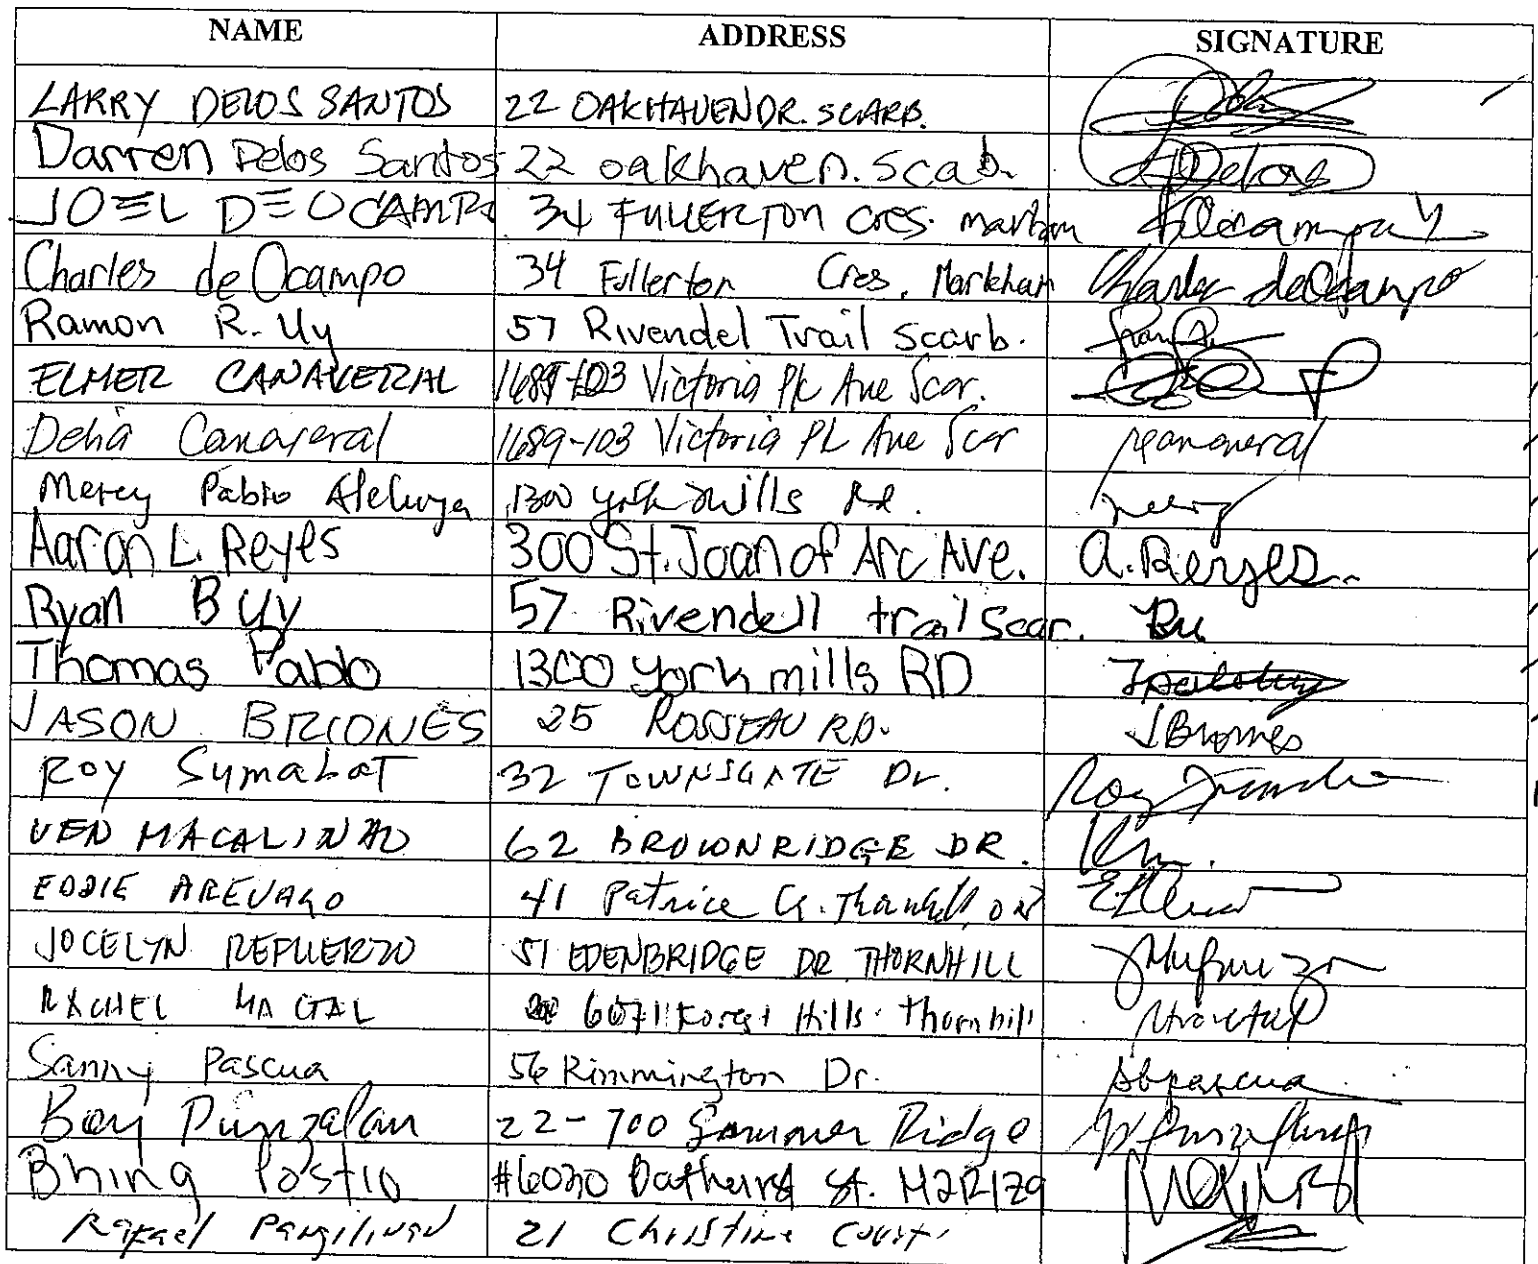 NAME ADDRESS SIGNATURE
LARRY DELOS SANTOS 22 OAKHAVEN DR. SCARB.
Darren Delos Santos 22 oakhaven. scab. Delos
JOEL DEOCAMPO 34 FULLERTON cres. markham
Charles de Ocampo 34 Fullerton Cres. Markham Charles deOcampo
Ramon R. Uy 57 Rivendel Trail scarb.
ELMER CANAVERAL 1689-103 Victoria Pk Ave Scar.
Delia Canaveral 1689-103 Victoria Pk Ave Scar
Mercy Pablo Aleluya 1300 york mills Rd.
Aaron L. Reyes 300 St. Joan of Arc Ave. A. Reyes
Ryan B Uy 57 Rivendell trail Scar.
Thomas Pablo 1300 york mills RD
JASON BRIONES 25 ROSSEAU RD. JBriones
ROY SymabaT 32 TOWNSGATE Dr. Roy
VEN MACALINAO 62 BROWNRIDGE DR.
EDDIE AREVALO 41 Patrice Cr.
JOCELYN REFUERZO 51 EDENBRIDGE DR THORNHILL
RACHEL MAGTAL Forest Hills Thornhill
Sanny Pascua 56 Rimmington Dr.
Boy Punzalan 22-700 Summer Ridge
Bhing Postio #6030 Bathurst St. M2R1Z9
Rafael Pangilinan 21 Christine Court